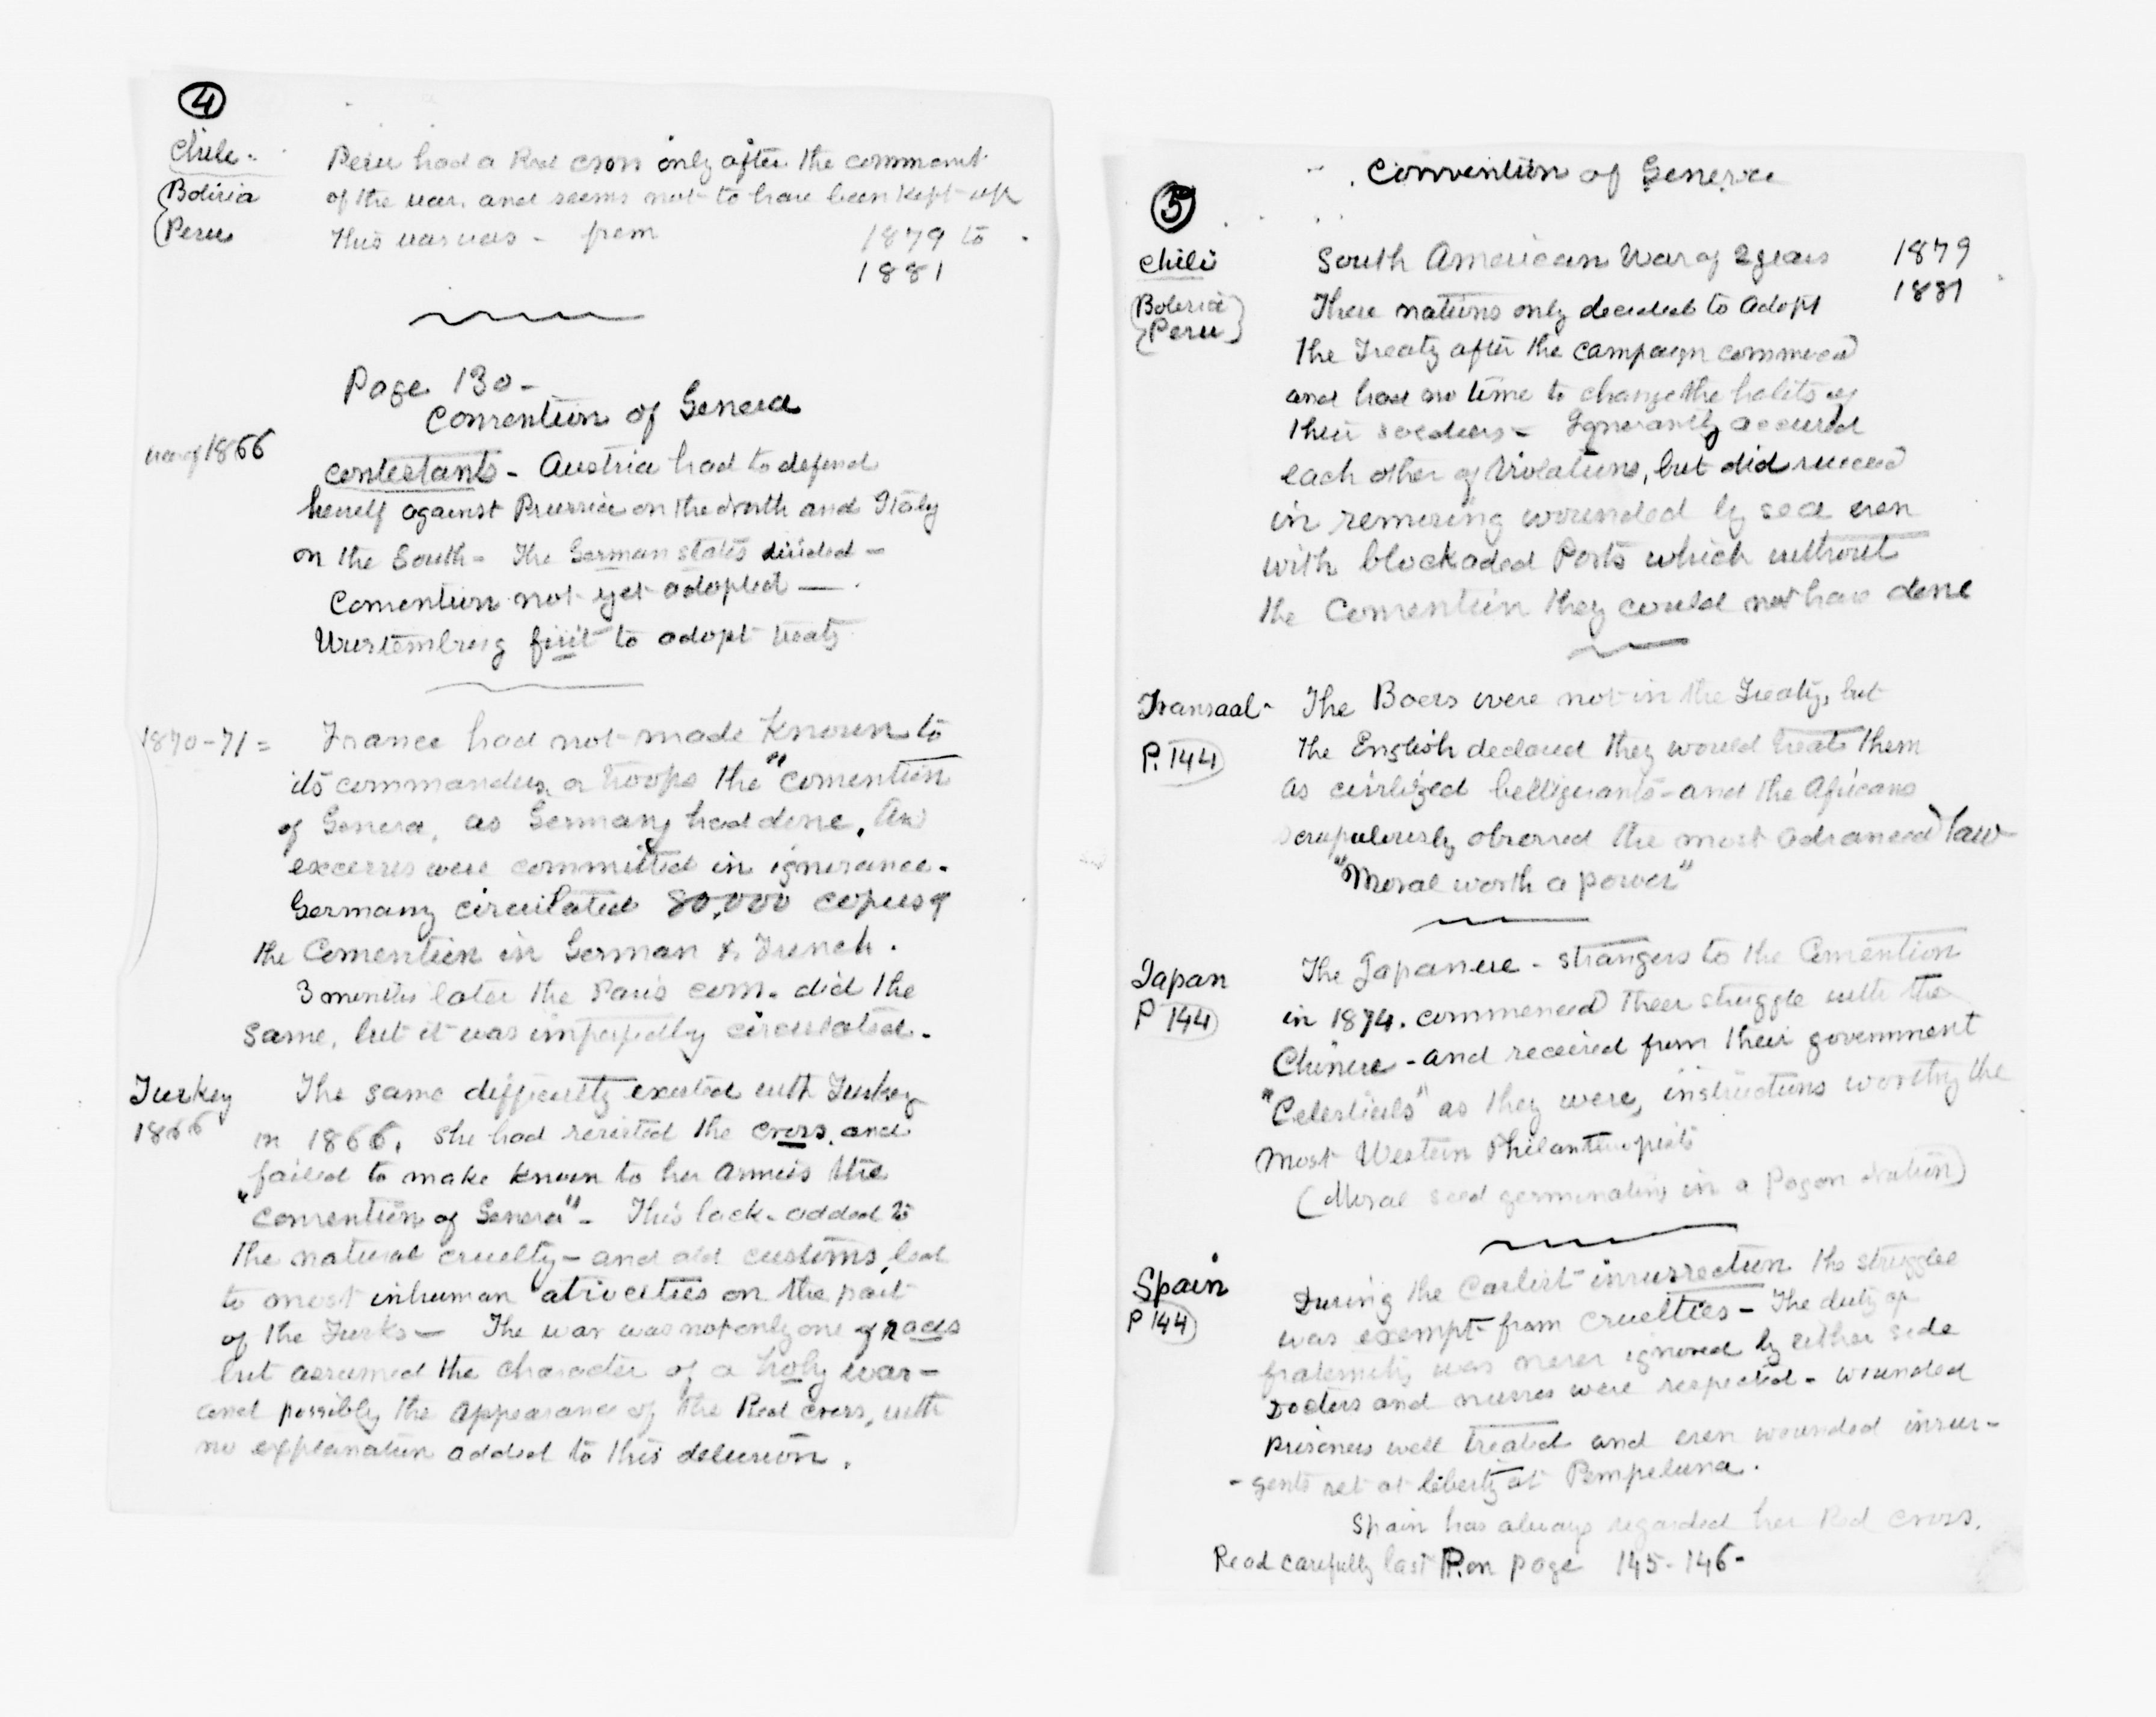 4
Chile.
Bolivia
Peru
Peru had a Red cross only after the commenct
of the war. and seems not to have been kept up
This war was - from 1879 to
1881
Page 130-
Convention of Geneva
war of 1866
contestants - Austria had to defend
herself against Prussia on the North and Italy
on the South - The German states divided -
Convention not yet adopted -
Wurtemburg first to adopt treaty
1870-71 =
France had not made known to
its commanders or troops the "convention
of Geneva, as Germany had done.
excesses were committed in ignorance.
Germany circulated 80,000 copies of
the Convention in German & French.
3 months later the Paris com. did the
same, but it was imperfectly circulated.
Turkey
1866
The same difficulty existed with Turkey
in 1866. She had resisted the cross and
failed to make known to her Armies the
"Convention of Geneva" - This lack - added to
the natural cruelty - and old customs, led
to most inhuman atrocities on the part
of the Turks - The war was not only one of races
but assumed the character of a holy war -
and possibly the appearance of the Red cross, with
no explanation added to this delusion.
Convention of Geneva
5
Chili
Bolivia
Peru
South American War of 2 years 1879
1881
These nations only decided to adopt
the Treaty after the campaign commenced
and had no time to change the habits of
their soldiers - Ignorantly accused
each other of violations, but did succeed
in removing wounded by sea even
with blockaded Ports which without
the Convention they could not have done
Transaal -
P. 144
The Boers were not in the Treaty, but
the English declared they would treat them
as civilized belligerants - and the Africans
scrupulously observed the most advanced law
"Moral worth a power"
Japan
P 144
The Japanese - strangers to the Convention
in 1874. commenced their struggle with the
Chinese - and received from their government
"Celestials" as they were, instructions worthy the
most Western Philanthropists
(Moral seed germinating in a Pagan Nation)
Spain
P 144
During the Carlist insurrection the struggle
was exempt from cruelties - The duty of
fraternity was never ignored by either side
Doctors and nurses were respected - wounded
prisoners well treated and even wounded insur-
- gents set at liberty at Pempeluna.
Spain has always regarded her Red cross.
Read carefully last P. on page 145-146-